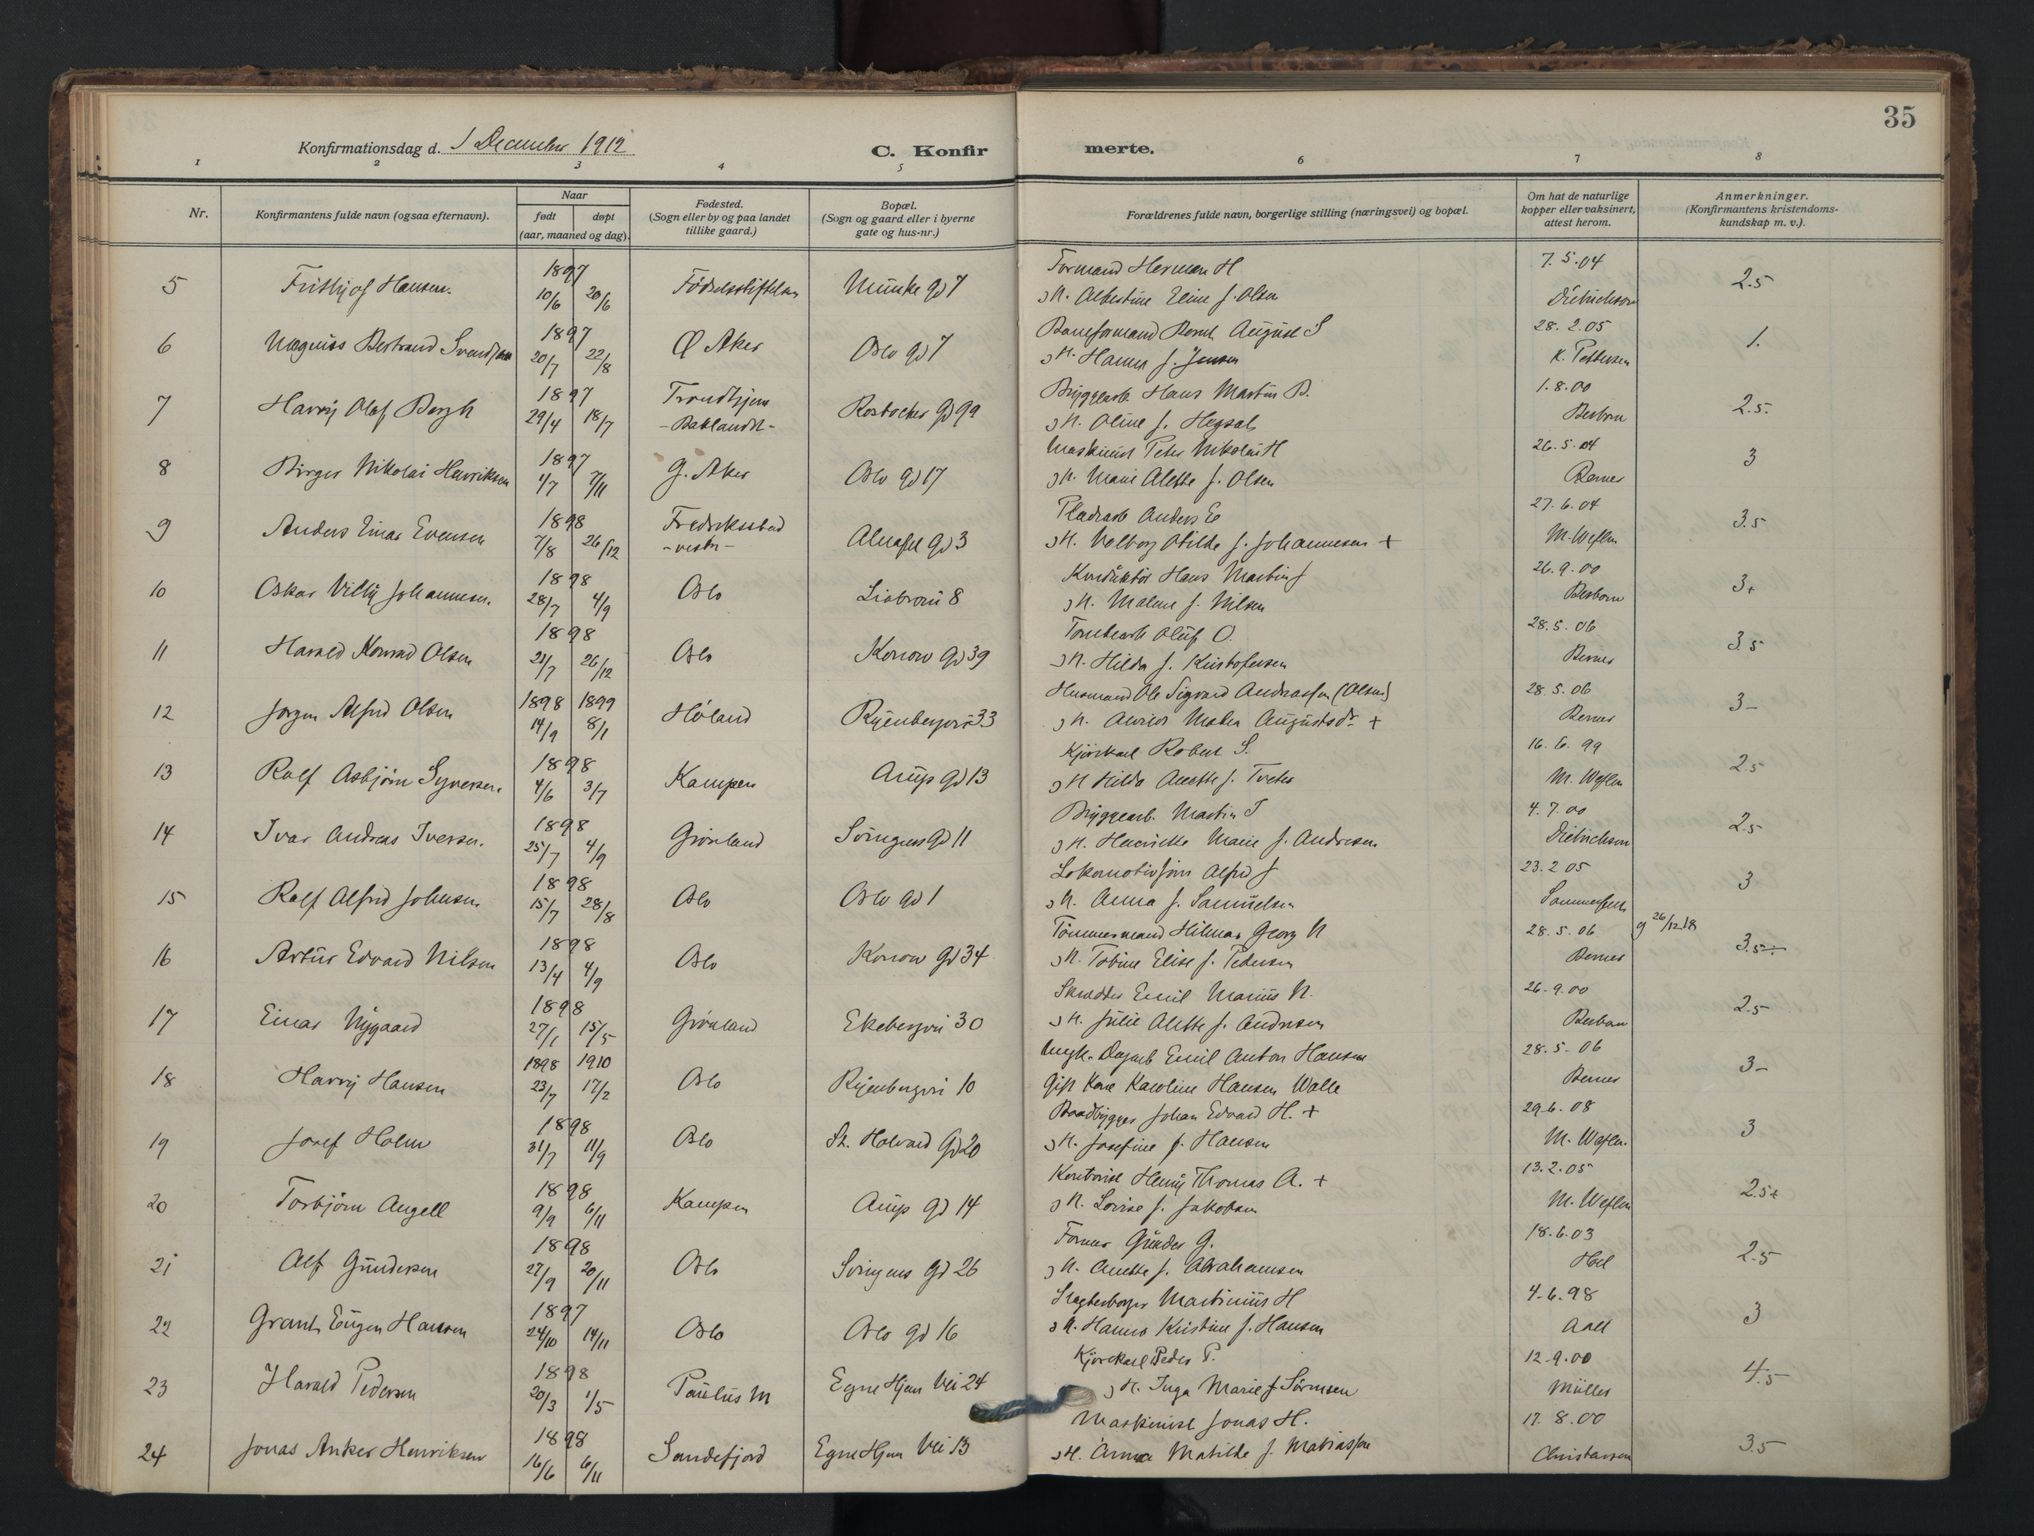 35
Konfirmationsdag d. 1 December 1912
C. Konfirmerte.
1 2 3 4 5 6 7 8
Nr.
Konfirmantens fulde navn (ogsaa efternavn).
Naar
født døpt
(aar, maaned og dag).
Fødested.
(Sogn eller by og paa landet
tillike gaard.)
Bopæl.
(Sogn og gaard eller i byerne
gate og hus-nr.)
Forældrenes fulde navn, borgerlige stilling (næringsvei) og bopæl.
Om hat de naturlige
kopper eller vaksinert,
attest herom.
Anmerkninger.
(Konfirmantens kristendoms-
kundskap m. v.).
1897 Formand Herman H 7.5.04
5 Frithjof Hansen. 10/6 20/6 Fødselsstiftelsen Munke gd 7 2.5
Albertine Eline f. Olsen Dietrichson
1897 Baneformand Bernt August S 28.2.05
6 Magnus Bertrand Svendsen 20/7 22/8 Ø Aker Oslo gd 7 1.
Hanna f. Jensen K. Pettersen
1897 Trondhjem Bryggearb Hans Martin B. 1.8.00
7 Harry Olaf Bergh 29/4 18/7 -Baklandet- Rostocker gd 99 2.5.
Oline f. Hegsal
1897 Maskinist Peter Nikolai H 26.5.04
8 Birger Nikolai Henriksen 4/7 7/11 G. Aker Oslo gd 17 3
Marie Alette f. Olsen Berner
1898 Fredrikstad Pladearb Anders E 27.6.04
9 Anders Einar Evensen 7/8 26/12 -vestre- gd 3 3.5
Valborg Otilde f. Johannesen + M. Weflen
1898 Konduktør Hans Martin J 26.9.00
10 Oskar Villy Johannesen. 28/7 4/9 Oslo Liabrovei 8 3+
Malene f. Nilsen
1898 Tomtearb Oluf O. 28.5.06
11 Harald Konrad Olsen 21/7 26/12 Oslo Konow gd 39 3.5
Hilda f. Kristofersen Berner
1898 1899 Husmand Ole Sigvard Andreassen (Olsen) 28.5.06
12 Jørgen Alfred Olsen 14/9 8/1 Høland Ryenbergvei 33 3-
Maten Augustsdr + Berner
1898 Kjørekarl Robert S. 16.6.99
13 Rolf Asbjørn Syversen. 4/6 3/7 Kampen Arups gd 13 2.5
Hilda Anette f. Tveter M. Weflen
1898 Bryggearb. Martin I 4.7.00
14 Ivar Andreas Iversen. 25/7 4/9 Grønland Sørngens gd 11 2.5
Henriette Marie f. Andresen Dietrichson
1898 Alfred J 23.2.05
15 Rolf Alfred Johnsen 15/7 28/8 Oslo Oslo gd 1 3
Anna f. Samuelsen Sommerfeldt
1898 Tømmermand Hilmar Georg N 28.5.06 g 26/12.18
16 Artur Edvard Nilsen 13/4 4/9 Oslo Konow gd 34 3.5-
Tobine Elise f. Pedersen Berner
1898 Skrædder Emil Marius N. 26.9.00
17 Einar Nygaard 27/1 15/5 Grønland Ekebergvei 30 2.5
Julie Alette f. Andresen
1898 1910 Ungk. Dagarb Emil Anton Hansen 28.5.06
18 Harry Hansen 23/7 17/2 Oslo Ryenbergvei 10 3-
Gift Kone Karoline Hansen Walle Berner
1898 Baadbygger Johan Edvard H. + 29.6.08
19 Josef Holm 31/7 11/9 Oslo St. Halvard gd 20 3
Josefine f. Hansen M. Weflen
1898 Kontorist Henry Thomas A. + 13.2.05
20 Torbjørn Angell 9/9 6/11 Kampen Arups gd 14 2.5+
Lovise f. Jakobsen M. Weflen
1898 Former Gunder G. 18.6.03
21 Alf Gundersen 27/9 20/11 Oslo Sørngens gd 26 2.5
Anette f. Abrahamsen
1897 Martinius H 4.6.98
22 Grant Eugen Hansen 24/10 14/11 Oslo Oslo gd 16 3
Hanna Kristine f. Hansen Aall
1898 Kjørekarl Peder P. 12.9.00
23 Harald Pedersen 20/3 1/5 Paulus M Egne Hjem Vei 24 4.5
Inga Marie f Sørensen Müller
1898 Maskinist Jonas H. 17.8.00
24 Jonas Anker Henriksen 16/6 6/11 Sandefjord Egne Hjem Vei 13 3.5
Anna Matilde f. Matiassen Christensen